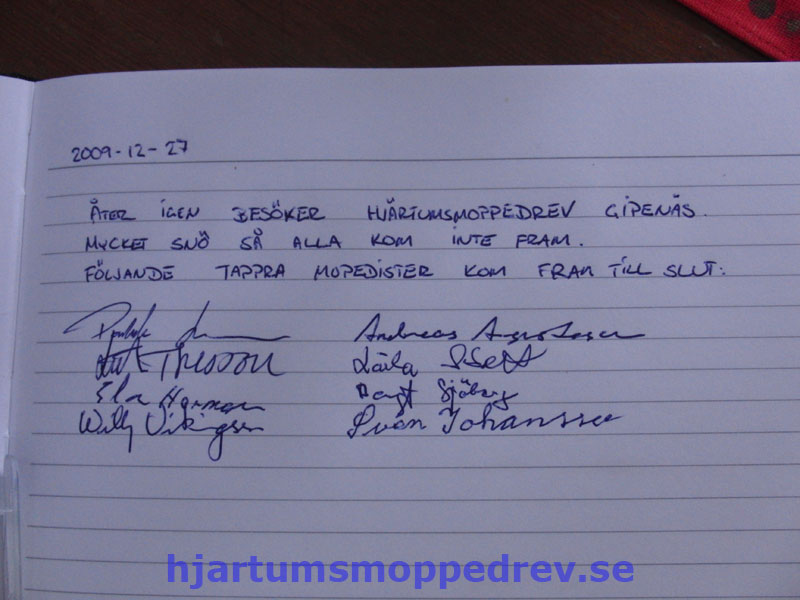 2009-12-27
ÅTER IGEN BESÖKER HJÄRTUMSMOPPEDREV GIPENÄS.
MYCKET SNÖ SÅ ALLA KOM INTE FRAM.
FÖLJANDE TAPPRA MOPEDISTER KOM FRAM TILL SLUT:
Andreas
Laila
Bengt Sjöberg
Willy Vikingsson Johansson
hjartumsmoppedrev.se